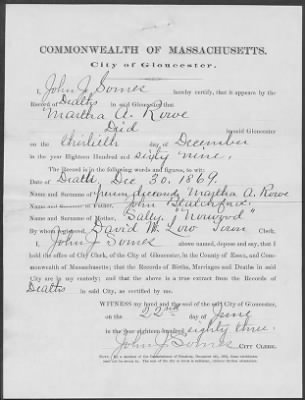 COMMONWEALTH OF MASSACHUSETTS.
City of Gloucester.
I, John J. Somes hereby certify, that it appears by the
Record of Deaths in said Gloucester that
Martha A. Rowe
Died in said Gloucester
on the thirtieth day of December
in the year Eighteen Hundred and sixty nine.
The Record is in the following words and figures, to wit:
Date of Death, Dec 30, 1869.
Name and Surname of Martha A. Rowe
Name and Surname of Father, John Blatchford
Name and Surname of Mother, Sally "Norwood"
By whom registered, David W. Low Town Clerk.
I, John J. Somes above named, depose and say, that I
hold the office of City Clerk, of the City of Gloucester, in the County of Essex, and Com-
monwealth of Massachusetts; that the Records of Births, Marriages and Deaths in said
City are in my custody; and that the above is a true extract from the Records of
Deaths in said City, as certified by me.
WITNESS my hand and the seal of the said City of Gloucester,
on the 22nd day of June
in the year eighteen hundred eighty three.
John J. Somes CITY CLERK.